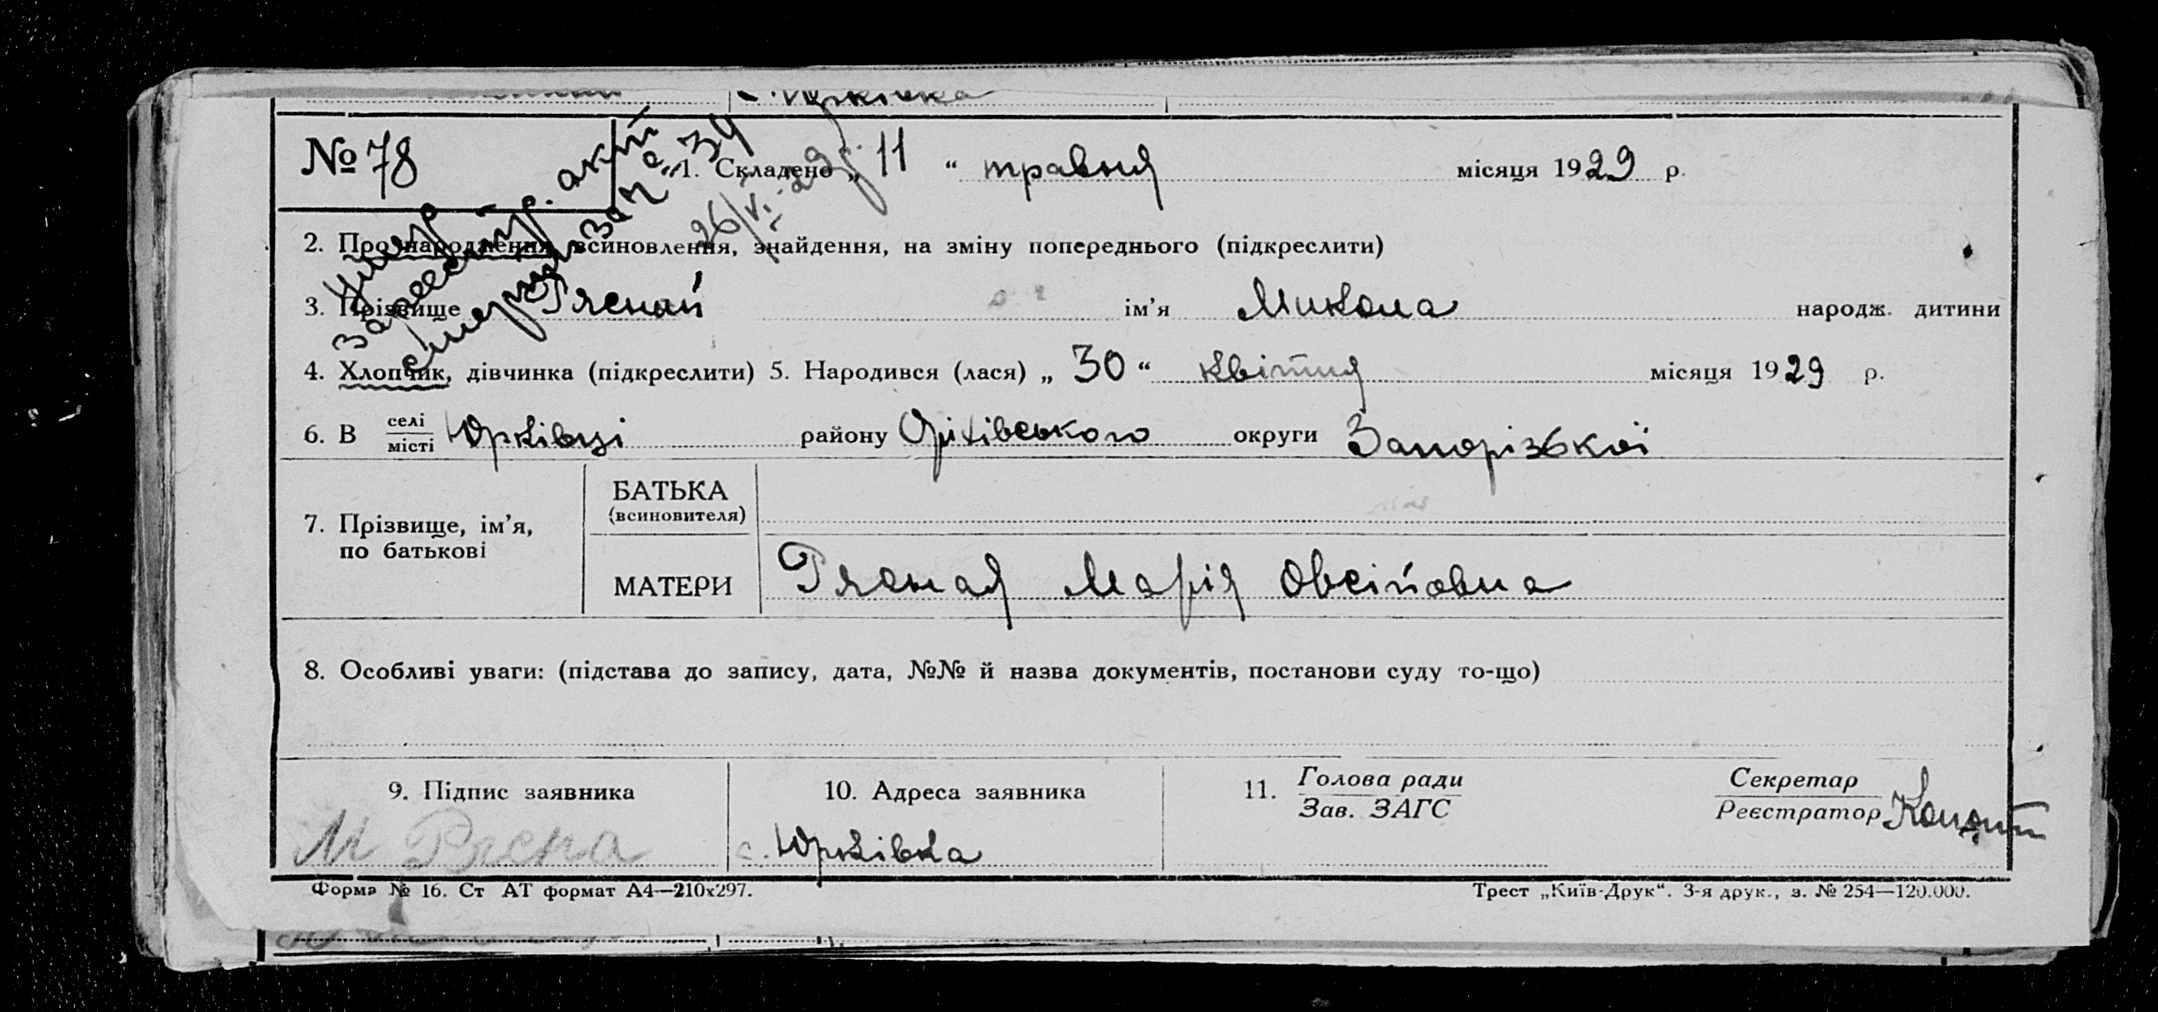 с. Юрківка
№ 78
1. Складено „ 11 “ травня місяця 1929 р.
Умер
зареєстр. акт
смерти за ч. 34
26/VI-29 р.
2. Про народження, всиновлення, знайдення, на зміну попереднього (підкреслити)
3. Прізвище Рясний ім’я Микола народж. дитини
4. Хлопчик, дівчинка (підкреслити) 5. Народився (лася) „ 30 “ квітня місяця 1929 р.
6. В селі/місті Юрківці району Оріхівського округи Запорізької
7. Прізвище, ім’я, по батькові
БАТЬКА
(всиновителя)
МАТЕРИ Рясная Марія Овсійовна
8. Особливі уваги: (підстава до запису, дата, №№ й назва документів, постанови суду то-що)
9. Підпис заявника
М Рясна
10. Адреса заявника
с. Юрківка
11. Голова ради
Зав. ЗАГС
Секретар
Реєстратор
Форма № 16. Ст АТ формат А4—210х297.
Трест „Київ-Друк“. 3-я друк., з. № 254—120.000.